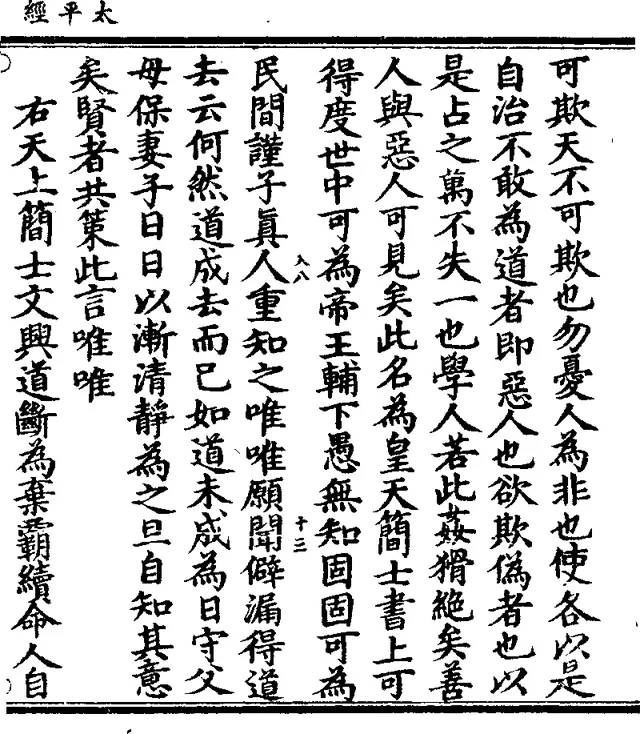 太平經
可欺天不可欺也勿憂人為非也使各以是
自治不敢為道者即惡人也欲欺偽者也以
是占之萬不失一也學人若此姦猾絶矣善
人與惡人可見矣此名為皇天簡士書上可
得度世中可為帝王輔下愚無知固固可為
入八
十三
民間謹子真人重知之唯唯願聞僻漏得道
去云何然道成去而已如道未成為日守父
母保妻子日日以漸清靜為之旦自知其意
矣賢者共策此言唯唯
右天上簡士文興道斷為棄霸續命人自